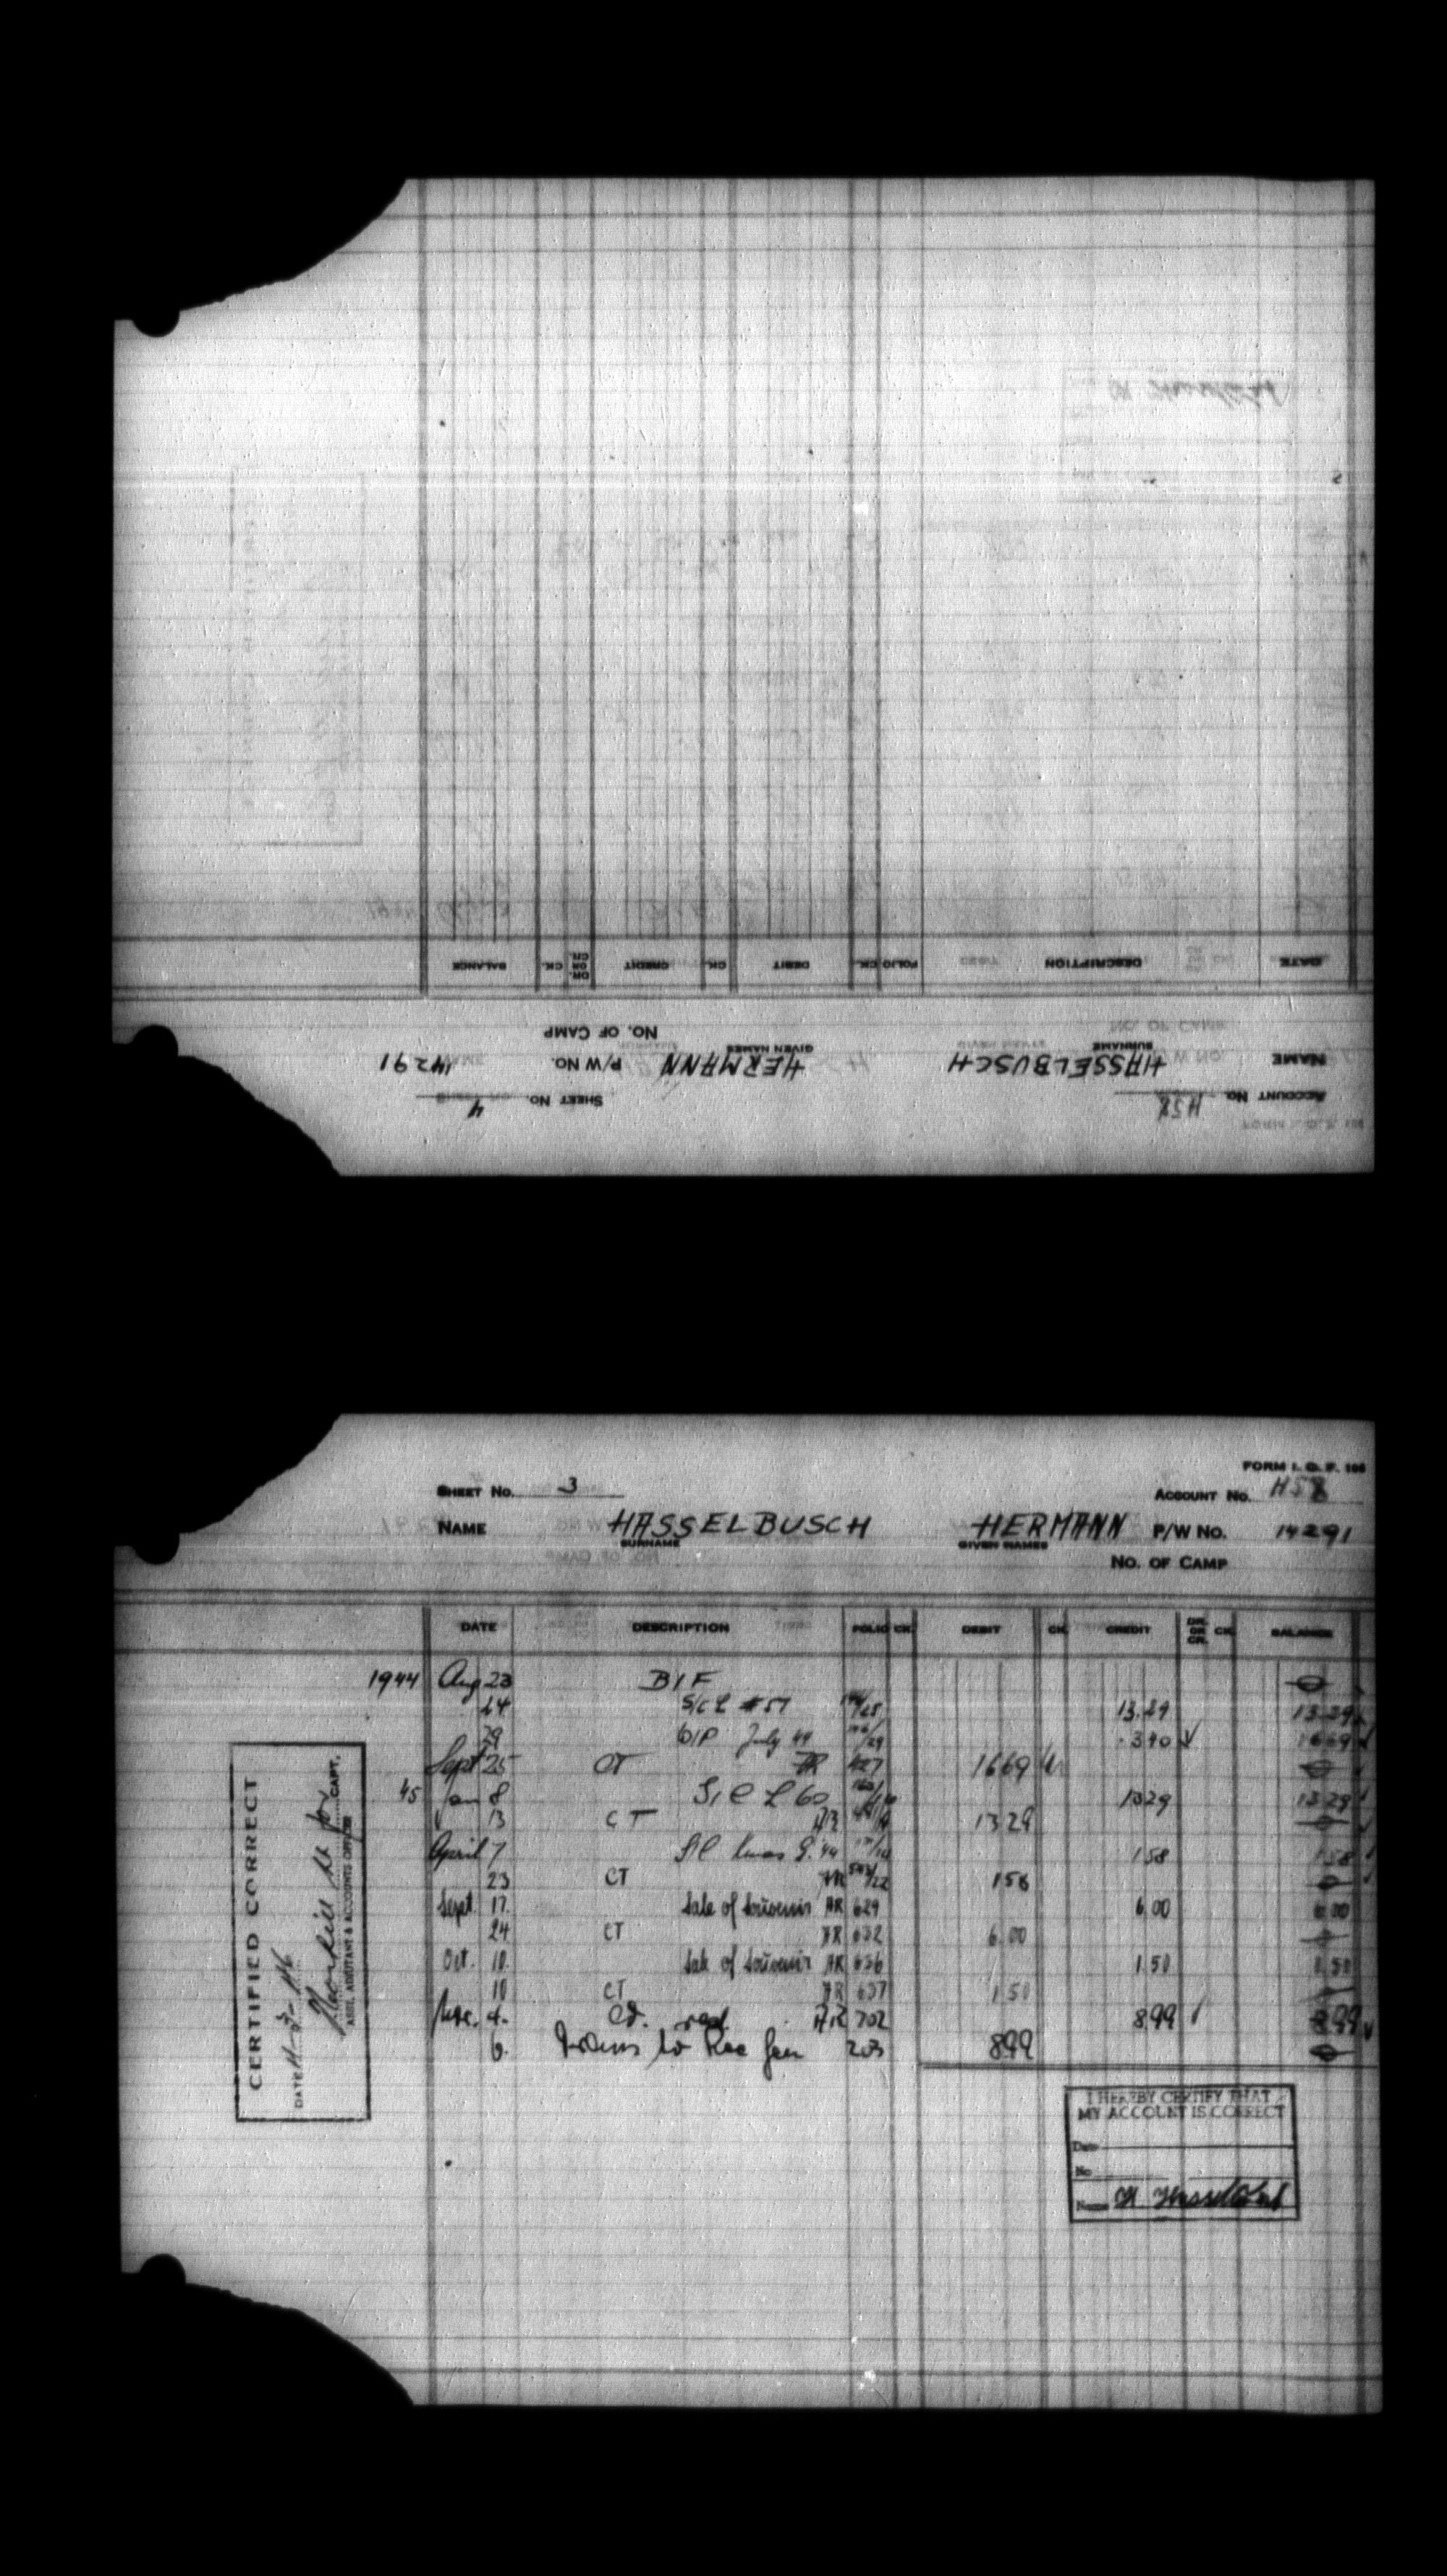 ACCOUNT No. H58 SHEET No. 4
NAME HASSELBUSCH HERMANN P/W No. 14291
SURNAME GIVEN NAMES
No. OF CAMP
DATE DESCRIPTION FOLIO CK. DEBIT CK. CREDIT DR. OR CR. CK. BALANCE
FORM I. O. F. 106
SHEET No. 3 ACCOUNT No. H58
NAME HASSELBUSCH HERMANN P/W No. 14291
SURNAME GIVEN NAMES
No. OF CAMP
DATE DESCRIPTION FOLIO CK. DEBIT CK. CREDIT DR. OR CR. CK. BALANCE
1944 Aug 23 B/F
24 S/C L #57 13.29 13.29
29 O/P July 44 3.40 16.69
Sept 25 CT AR 427 16 69
45 Jan 8 S/C L 60 13 29 13 29
13 CT AR 13 29
April 7 1 58 1 58
23 CT AR 1 58
Sept. 17. Sale of Souvenir AR 629 6.00 6.00
24 CT AR 632 6.00
Oct. 10. Sale of Souvenir AR 636 1.50 1.50
10 CT AR 637 1.50
4. AR 702 8 99 8 99
6. Trans to 203 8 99
CERTIFIED CORRECT
DATE
CAPT.
ASST. ADJUTANT & ACCOUNTS OFFICER
I HEREBY CERTIFY THAT
MY ACCOUNT IS CORRECT
Date
No
Name H Hasselbusch